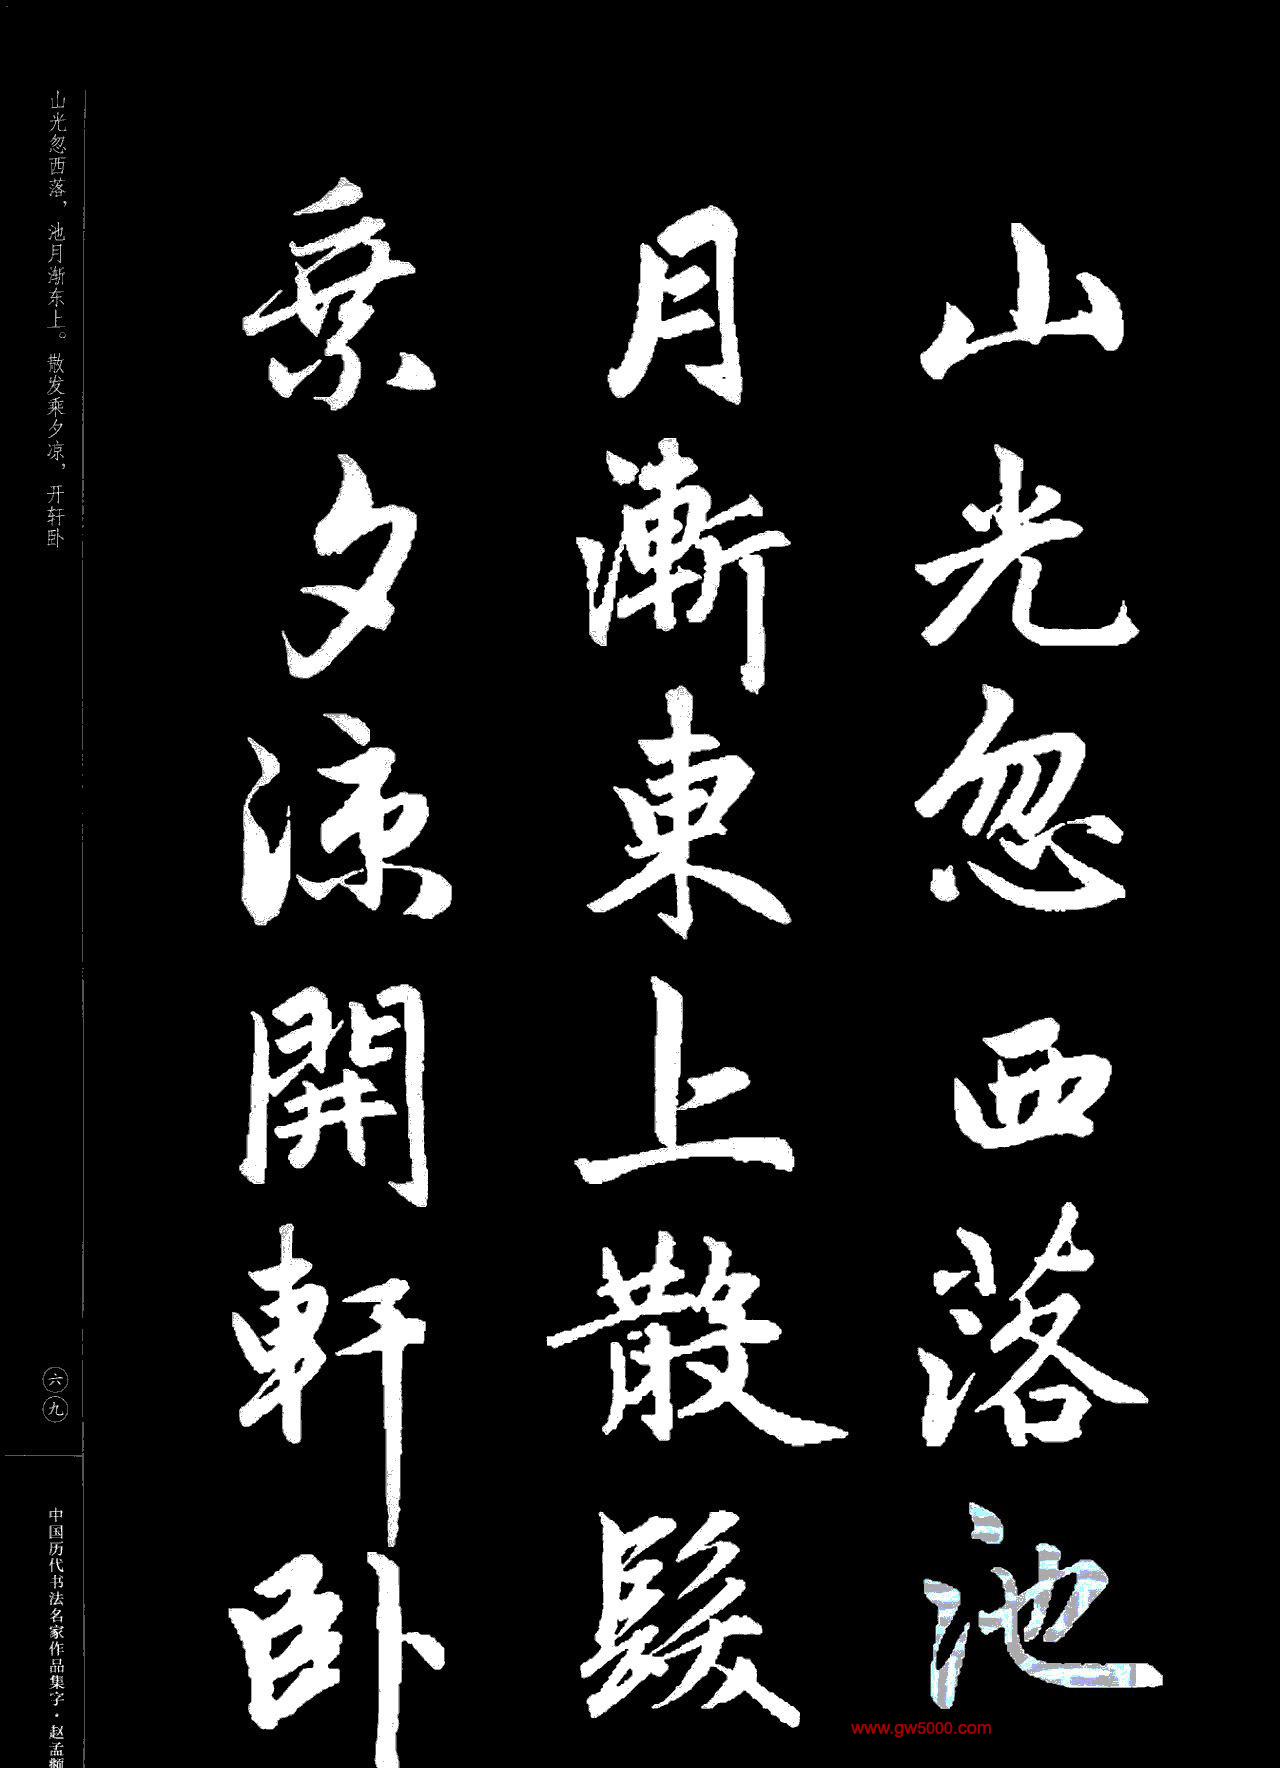 山光忽西落池
月漸東上散髮
乘夕涼開軒卧
山光忽西落，池月渐东上。散发乘夕凉，开轩卧
六九
中国历代书法名家作品集字·赵孟頫
www.gw5000.com